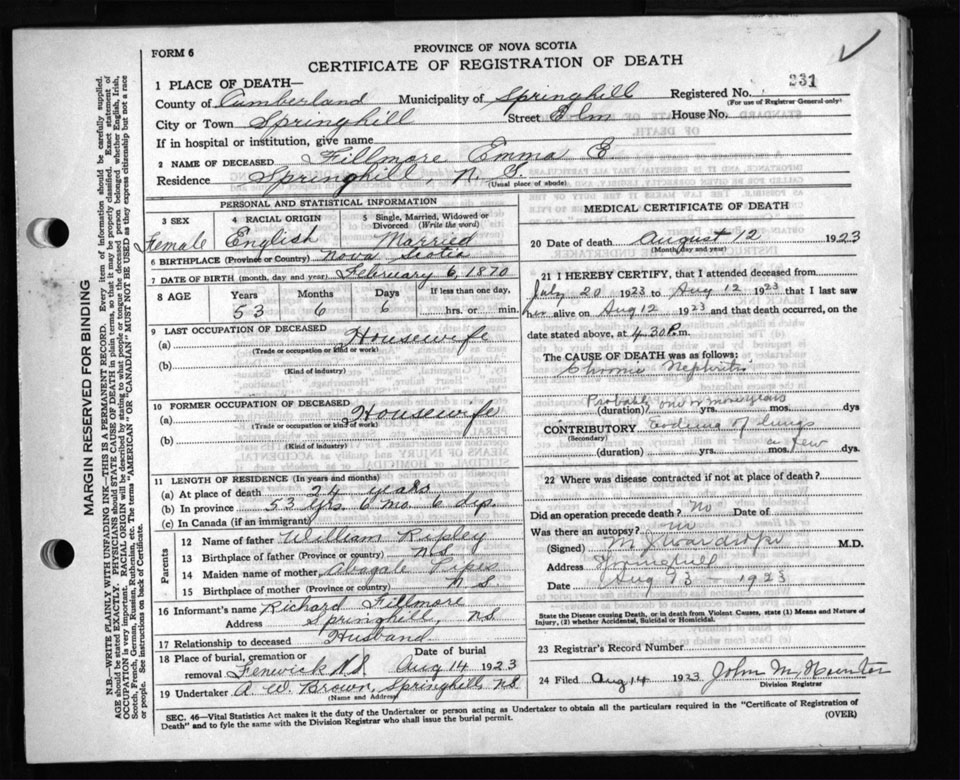 FORM 6
PROVINCE OF NOVA SCOTIA
CERTIFICATE OF REGISTRATION OF DEATH
1 PLACE OF DEATH—
Registered No. 231
(For use of Registrar General only)
County of Cumberland Municipality of Springhill
City or Town Springhill Street Elm House No.
If in hospital or institution, give name
2 NAME OF DECEASED Fillmore Emma E.
Residence Springhill, N. S.
(Usual place of abode)
PERSONAL AND STATISTICAL INFORMATION
3 SEX
Female
4 RACIAL ORIGIN
English
5 Single, Married, Widowed or Divorced (Write the word)
Married
6 BIRTHPLACE (Province or Country) Nova Scotia
7 DATE OF BIRTH (month, day, and year) February 6, 1870
8 AGE Years Months Days If less than one day,
53 6 6 hrs. or min.
9 LAST OCCUPATION OF DECEASED
(a) Housewife
(Trade or occupation or kind of work)
(b)
(Kind of industry)
10 FORMER OCCUPATION OF DECEASED
(a) Housewife
(Trade or occupation or kind of work)
(b)
(Kind of industry)
11 LENGTH OF RESIDENCE (In years and months)
(a) At place of death 24 years
(b) In province 53 yrs. 6 mo. 6 dys.
(c) In Canada (if an immigrant)
Parents
12 Name of father William Ripley
13 Birthplace of father (Province or country) N.S.
14 Maiden name of mother Abagale Pipes
15 Birthplace of mother (Province or country) N S
16 Informant's name Richard Fillmore
Address Springhill, N.S.
17 Relationship to deceased Husband
18 Place of burial, cremation or removal Fenwick N.S. Date of burial Aug 14 1923
19 Undertaker A. W. Brown, Springhill, N.S.
(Name and Address)
MEDICAL CERTIFICATE OF DEATH
20 Date of death August 12 1923
(Month, day and year)
21 I HEREBY CERTIFY, that I attended deceased from
July 20 1923 to Aug 12 1923 that I last saw
her alive on Aug 12 1923 and that death occurred, on the
date stated above, at 4.30 P.m.
The CAUSE OF DEATH was as follows:
Chronic Nephritis
Probably one or more years
(duration) yrs. mos. dys
CONTRIBUTORY Eodema of lungs
(Secondary)
a few
(duration) yrs. mos. dys
22 Where was disease contracted if not at place of death?
Did an operation precede death? No Date of
Was there an autopsy? no
(Signed) M.D.
Address Springhill
Date Aug 13 - 1923
State the Disease causing Death, or in death from Violent Causes, state (1) Means and Nature of Injury, (2) whether Accidental, Suicidal or Homicidal.
23 Registrar's Record Number
24 Filed Aug 14 1923 John M
Division Registrar
SEC. 46—Vital Statistics Act makes it the duty of the Undertaker or person acting as Undertaker to obtain all the particulars required in the "Certificate of Registration of
Death" and to fyle the same with the Division Registrar who shall issue the burial permit.
(OVER)
MARGIN RESERVED FOR BINDING
N.B.—WRITE PLAINLY WITH UNFADING INK—THIS IS A PERMANENT RECORD. Every item of information should be carefully supplied.
AGE should be stated EXACTLY. PHYSICIANS should STATE CAUSE OF DEATH in plain terms, so that it may be properly classified. Exact statement of
OCCUPATION is very important. RACIAL ORIGIN will be described by stating to what people or tongue the deceased person belonged whether English, Irish,
Scotch, French, German, Russian, Ruthenian, etc. The terms "AMERICAN" or "CANADIAN" MUST NOT BE USED as they express citizenship but not a race
or people. See instructions on back of Certificate.